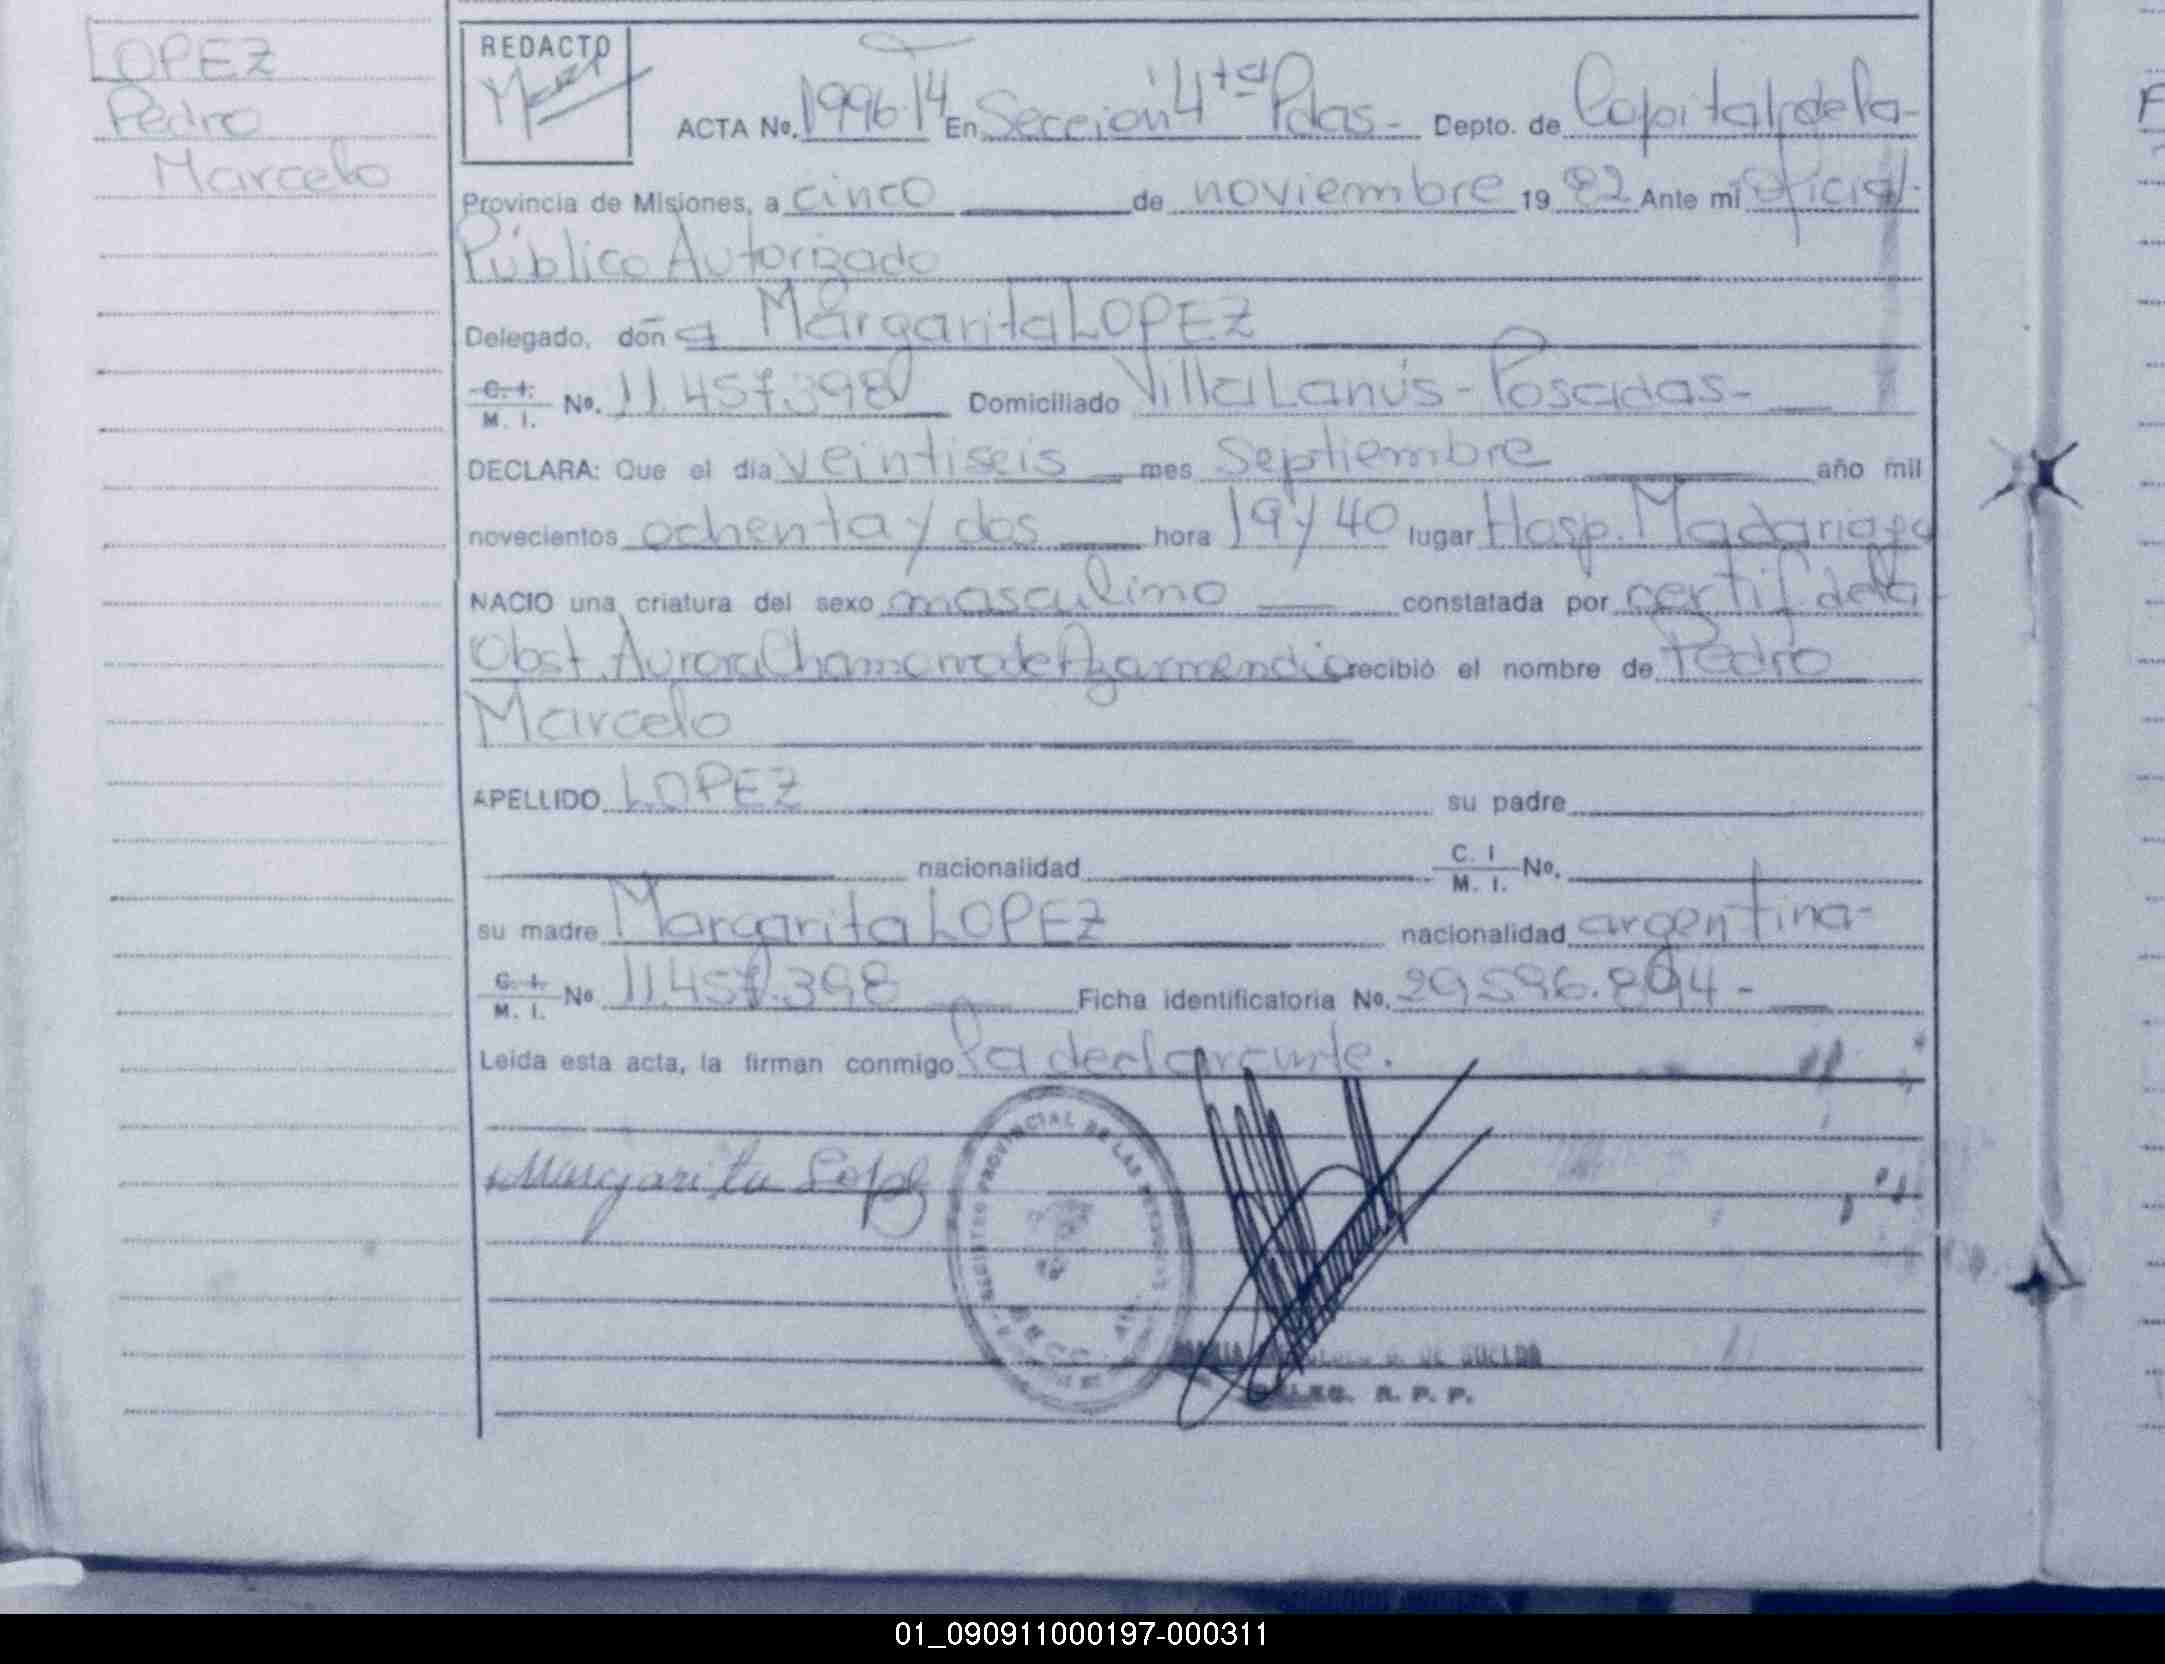 LOPEZ
Pedro
Marcelo
REDACTO
ACTA No. 1996.T4 En Seccion 4ta Pdas- Depto. de Capital, de la-
Provincia de Misiones, a cinco de noviembre 19 82 Ante mi Oficial
Público Autorizado
Delegado, doña Margarita LOPEZ
C. I. M. I. No. 11.457.398 Domiciliado Villa Lanús - Posadas-
DECLARA: Que el dia veintiseis mes septiembre año mil
novecientos ochenta y dos hora 19 y 40 lugar Hosp. Madariaga
NACIO una criatura del sexo masculino constatada por certif. de la
Obst. Aurora Chamorro de Agarmendia recibió el nombre de Pedro
Marcelo
APELLIDO LOPEZ su padre
nacionalidad C. I M. I. No.
su madre Margarita LOPEZ nacionalidad argentina-
C. I. M. I. No 11.457.398 Ficha identificatoria No. 29.596.894 -
Leida esta acta, la firman conmigo la declarante.
Margarita Lopez
REGISTRO PROVINCIAL DE LAS PERSONAS
DE
DELEG. R. P. P.
01_090911000197-000311